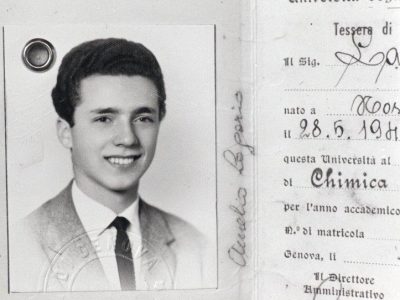 Tessera di
Il Sig.
nato a
il 28.5.194
questa Università al
di Chimica
per l'anno accademico
N.º di matricola
Genova, li
Il Direttore
Amministrativo
Aurelio
GENOVA